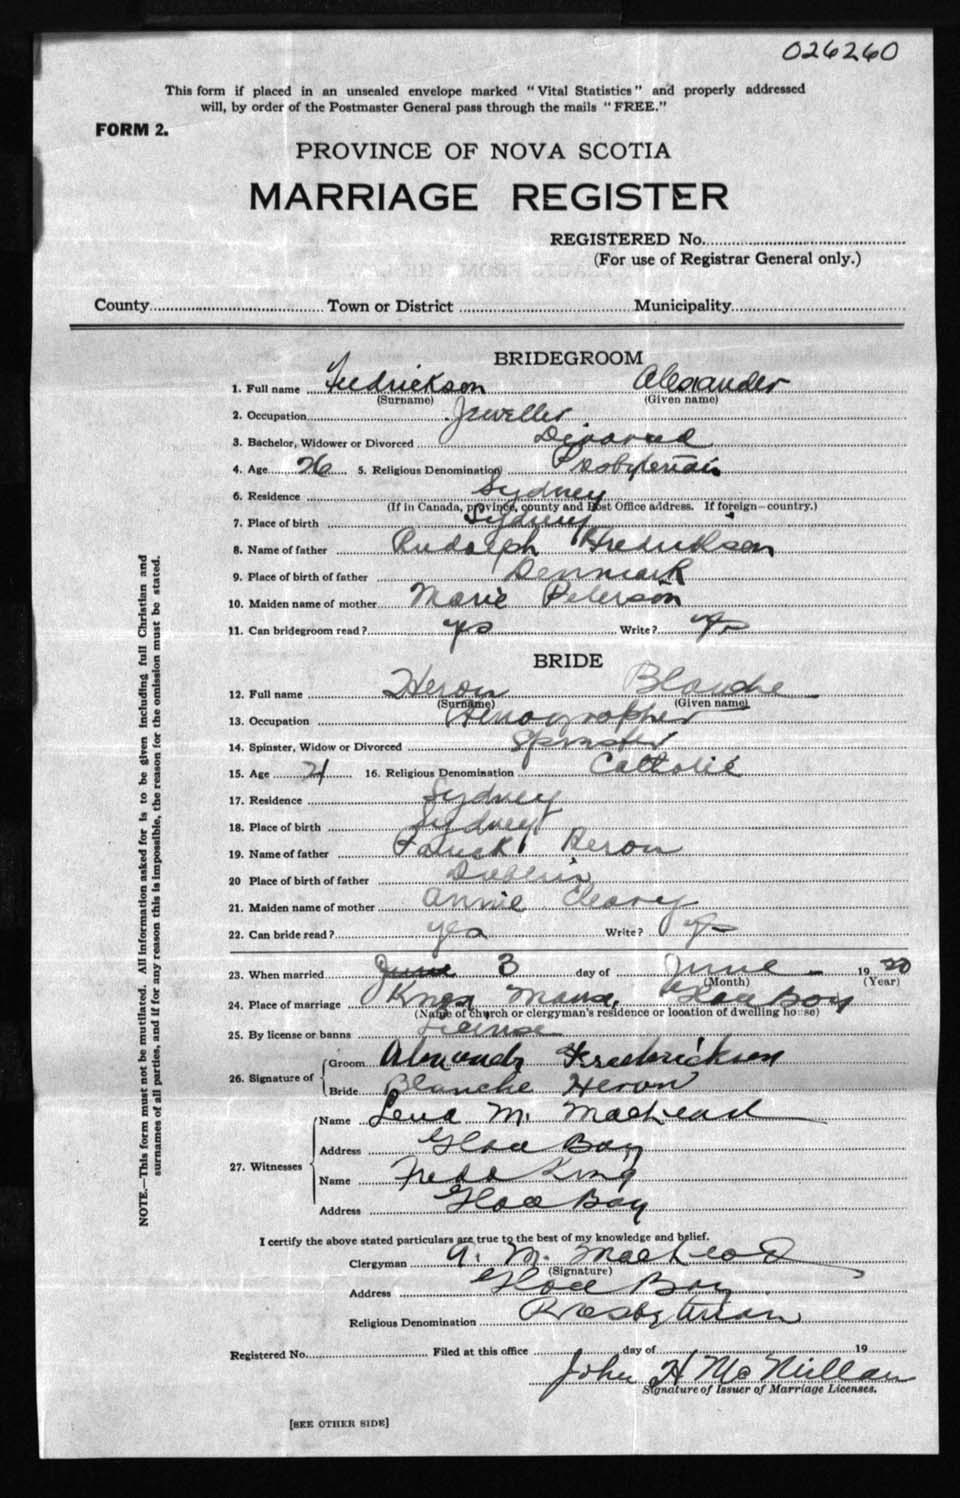 026260
This form if placed in an unsealed envelope marked "Vital Statistics" and properly addressed
will, by order of the Postmaster General pass through the mails "FREE."
FORM 2.
PROVINCE OF NOVA SCOTIA
MARRIAGE REGISTER
REGISTERED No.
(For use of Registrar General only.)
County Town or District Municipality
BRIDEGROOM
1. Full name Fredrickson Alexander
(Surname) (Given name)
2. Occupation Jeweller
3. Bachelor, Widower or Divorced Divorced
4. Age 26 5. Religious Denomination Presbyterian
6. Residence Sydney
(If in Canada, province, county and Post Office address. If foreign—country.)
7. Place of birth Sydney
8. Name of father Rudolph Fredrickson
9. Place of birth of father Denmark
10. Maiden name of mother Marie Peterson
11. Can bridegroom read? yes Write? yes
BRIDE
12. Full name Heron Blanche
(Surname) (Given name)
13. Occupation Stenographer
14. Spinster, Widow or Divorced Spinster
15. Age 21 16. Religious Denomination Catholic
17. Residence Sydney
18. Place of birth Sydney
19. Name of father Patrick Heron
20 Place of birth of father Dublin
21. Maiden name of mother Annie Cleary
22. Can bride read? yes Write? yes
23. When married June 3 day of June 19
(Month) (Year)
24. Place of marriage Manse, Glace Bay
(Name of church or clergyman's residence or location of dwelling house)
25. By license or banns License
26. Signature of Groom Frederickson
Bride Blanche Heron
27. Witnesses
Name Lena M. MacLeod
Address Glace Bay
Name Freda King
Address Glace Bay
I certify the above stated particulars are true to the best of my knowledge and belief.
Clergyman A. M. MacLeod
(Signature)
Address Glace Bay
Religious Denomination Presbyterian
Registered No. Filed at this office day of 19
John H McMillan
Signature of Issuer of Marriage Licenses.
[SEE OTHER SIDE]
NOTE.—This form must not be mutilated. All information asked for is to be given including full Christian and
surnames of all parties, and if for any reason this is impossible, the reason for the omission must be stated.